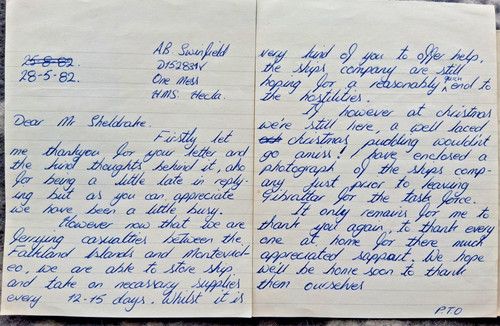 25-8-82.
28-5-82.
A.B. Swinfield
D152834V
One Mess
HMS. Hecla.
Dear Mr Sheldrake.
Firstly let
me thankyou for your letter and
the kind thoughts behind it, also
for being a little late in reply-
ing but as you can appreciate
we have been a little busy.
However now that we are
ferrying casualties between the
Falkland Islands and Montevid-
eo, we are able to store ship,
and take on necassary supplies
every 12-15 days. Whilst it is
very kind of you to offer help,
the ships company are still
hoping for a reasonably quick end to
the hostilities.
If however at christmas
we're still here, a well laced
christmas pudding wouldn't
go amiss! I have enclosed a
photograph of the ships comp-
any just prior to leaving
Gibraltar for the task force.
It only remains for me to
thank you again, to thank every
one at home for there much
appreciated support. We hope
we'll be home soon to thank
them ourselves
PTO